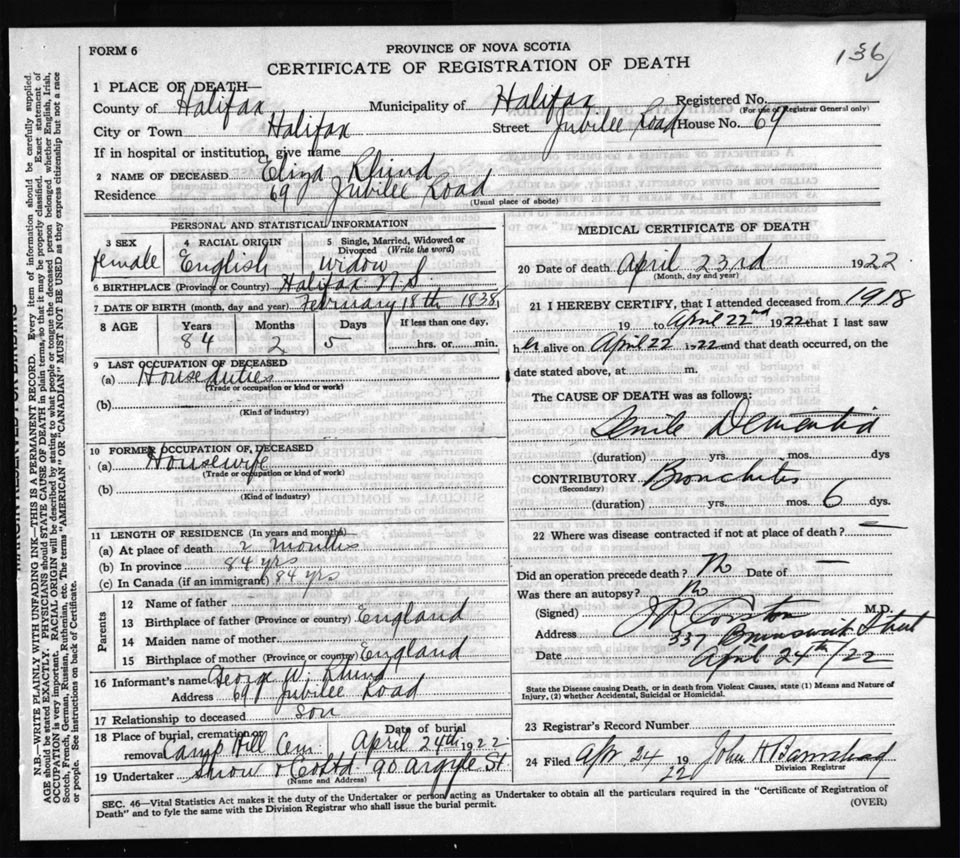 FORM 6
PROVINCE OF NOVA SCOTIA
CERTIFICATE OF REGISTRATION OF DEATH
136
1 PLACE OF DEATH—
County of Halifax Municipality of Halifax Registered No.
(For use of Registrar General only)
City or Town Halifax Street Jubilee Road House No. 69
If in hospital or institution, give name
2 NAME OF DECEASED Eliza Rhind
Residence 69 Jubilee Road
(Usual place of abode)
PERSONAL AND STATISTICAL INFORMATION
3 SEX female
4 RACIAL ORIGIN English
5 Single, Married, Widowed or Divorced (Write the word) Widow
6 BIRTHPLACE (Province or Country) Halifax N.S
7 DATE OF BIRTH (month, day and year) February 18th 1838
8 AGE Years Months Days If less than one day,
84 2 5 hrs. or min.
9 LAST OCCUPATION OF DECEASED
(a) House duties
(Trade or occupation or kind of work)
(b)
(Kind of industry)
10 FORMER OCCUPATION OF DECEASED
(a) Housewife
(Trade or occupation or kind of work)
(b)
(Kind of industry)
11 LENGTH OF RESIDENCE (In years and months)
(a) At place of death 2 months
(b) In province 84 yrs
(c) In Canada (if an immigrant) 84 yrs
Parents
12 Name of father
13 Birthplace of father (Province or country) England
14 Maiden name of mother
15 Birthplace of mother (Province or country) England
16 Informant's name George W. Rhind
Address 69 Jubilee Road
17 Relationship to deceased son
18 Place of burial, cremation or removal Camp Hill Cem. Date of burial April 24th 1922
19 Undertaker Snow & Co Ltd 90 Argyle St.
(Name and Address)
MEDICAL CERTIFICATE OF DEATH
20 Date of death April 23rd 1922
(Month, day and year)
21 I HEREBY CERTIFY, that I attended deceased from 1918
19 to April 22nd 1922 that I last saw
her alive on April 22 1922 and that death occurred, on the
date stated above, at m.
The CAUSE OF DEATH was as follows:
Senile Dementia
(duration) yrs. mos. dys
CONTRIBUTORY Bronchitis
(Secondary)
(duration) yrs. mos. 6 dys.
22 Where was disease contracted if not at place of death? —
Did an operation precede death? No Date of —
Was there an autopsy? No
(Signed) J R Corston M.D.
Address 337 Brunswick Street
Date April 24th/22
State the Disease causing Death, or in death from Violent Causes, state (1) Means and Nature of
Injury, (2) whether Accidental, Suicidal or Homicidal.
23 Registrar's Record Number
24 Filed Apr. 24 1922 John H Barnstead
Division Registrar
SEC. 46—Vital Statistics Act makes it the duty of the Undertaker or person acting as Undertaker to obtain all the particulars required in the "Certificate of Registration of
Death" and to fyle the same with the Division Registrar who shall issue the burial permit.
(OVER)
MARGIN RESERVED FOR BINDING
N.B.—WRITE PLAINLY WITH UNFADING INK—THIS IS A PERMANENT RECORD. Every item of information should be carefully supplied.
AGE should be stated EXACTLY. PHYSICIANS should STATE CAUSE OF DEATH in plain terms, so that it may be properly classified. Exact statement of
OCCUPATION is very important. RACIAL ORIGIN will be described by stating to what people or tongue the deceased person belonged whether English, Irish,
Scotch, French, German, Russian, Ruthenian, etc. The terms "AMERICAN" OR "CANADIAN" MUST NOT BE USED as they express citizenship but not a race
or people. See instructions on back of Certificate.